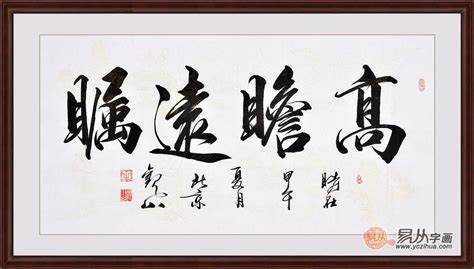 高瞻遠矚
時在
甲午
夏月
北京
易从字画
www.yczihua.com